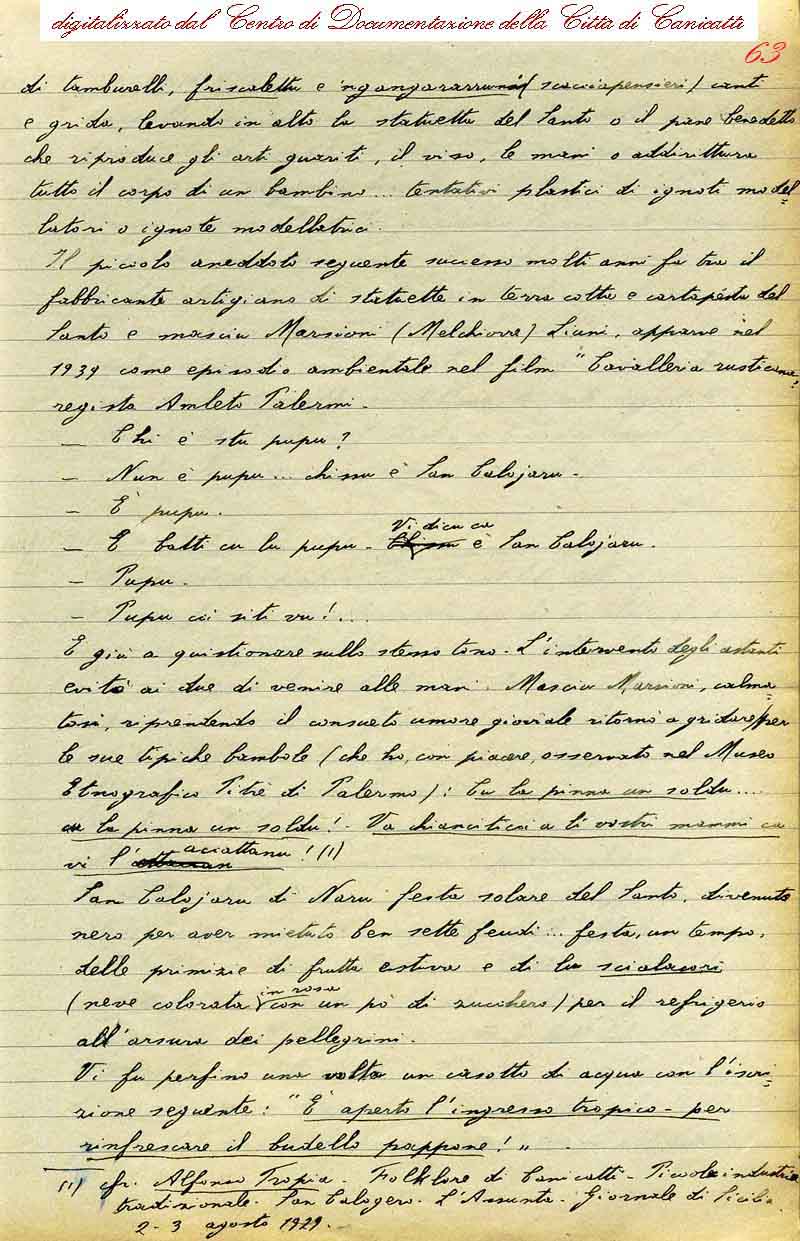 digitalizzato dal Centro di Documentazione della Città di Canicattì
63
di tamburelli, friscaletta e ngangararruna (scacciapensieri) canti
e grida, levando in alto la statuetta del Santo o il pane benedetto
che riproduce gli arti guariti, il viso, le mani o addirittura
tutto il corpo di un bambino... tentativi plastici di ignoti model-
latori o ignote modellatrici.
Il piccolo aneddoto seguente successo molti anni fa tra il
fabbricante artigiano di statuette in terra cotta e cartapesta del
Santo e masciu Marsioni (Melchiorre) Liuni, apparve nel
1939 come episodio ambientale nel film "Cavalleria rusticana"
regista Amleto Palermi.
– Chi è stu pupu?
– Nun è pupu... chissu è San Calojaru.
– È pupu.
– E batti cu lu pupu. Vi dicu ca è San Calojaru.
– Pupu.
– Pupu cci siti vu!...
E giù a quistionare sullo stesso tono. L'intervento degli astanti
evitò ai due di venire alle mani. Masciu Marsioni, calma-
tosi, riprendendo il consueto umore gioviale ritornò a gridare per
le sue tipiche bambole (che ho, con piacere, osservato nel Museo
Etnografico Pitrè di Palermo): Cu la pinna un soldu....
cu la pinna un soldu! - Va chianciticci a li vostri mammi ca
vi l'accattanu! (1)
San Calojaru di Naru festa solare del Santo, divenuto
nero per aver mietuto ben sette feudi... festa, un tempo,
delle primizie di frutta estiva e di lu scialacori
(neve colorata in rosa con un pò di zucchero) per il refrigerio
all'arsura dei pellegrini.
Vi fu perfino una volta un casotto di acqua con l'iscri-
zione seguente: "È aperto l'ingresso tropico - per
rinfrescare il budello pappone!"
(1) cfr. Alfonso Tropia - Folklore di Canicattì - Piccole industrie
tradizionale. San Calogero. L'Assunta. Giornale di Sicilia.
2-3 agosto 1929.